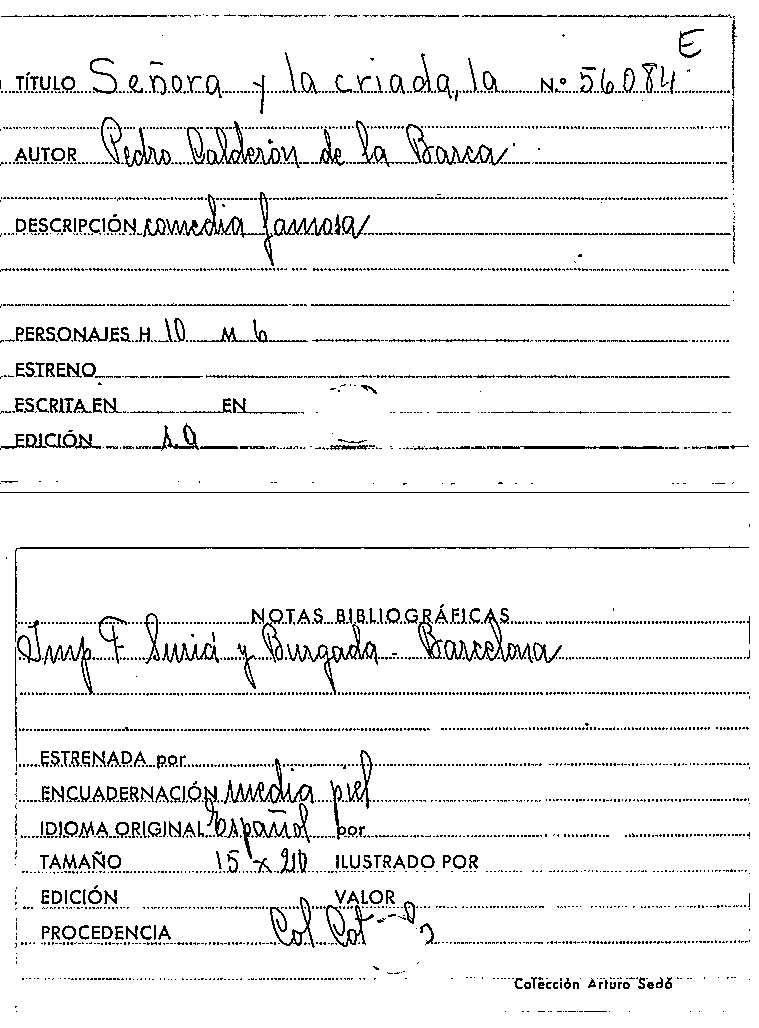 E
TÍTULO Señora y la criada, la N.º 56084
AUTOR Pedro Calderón de la Barca
DESCRIPCIÓN comedia famosa
PERSONAJES H 10 M 6
ESTRENO
ESCRITA EN EN
EDICIÓN s.a
NOTAS BIBLIOGRÁFICAS
Imp F Suriá y Burgada - Barcelona
ESTRENADA por
ENCUADERNACIÓN media piel
IDIOMA ORIGINAL Español por
TAMAÑO 15 x 210 ILUSTRADO POR
EDICIÓN VALOR
PROCEDENCIA Col
Colección Arturo Sedó